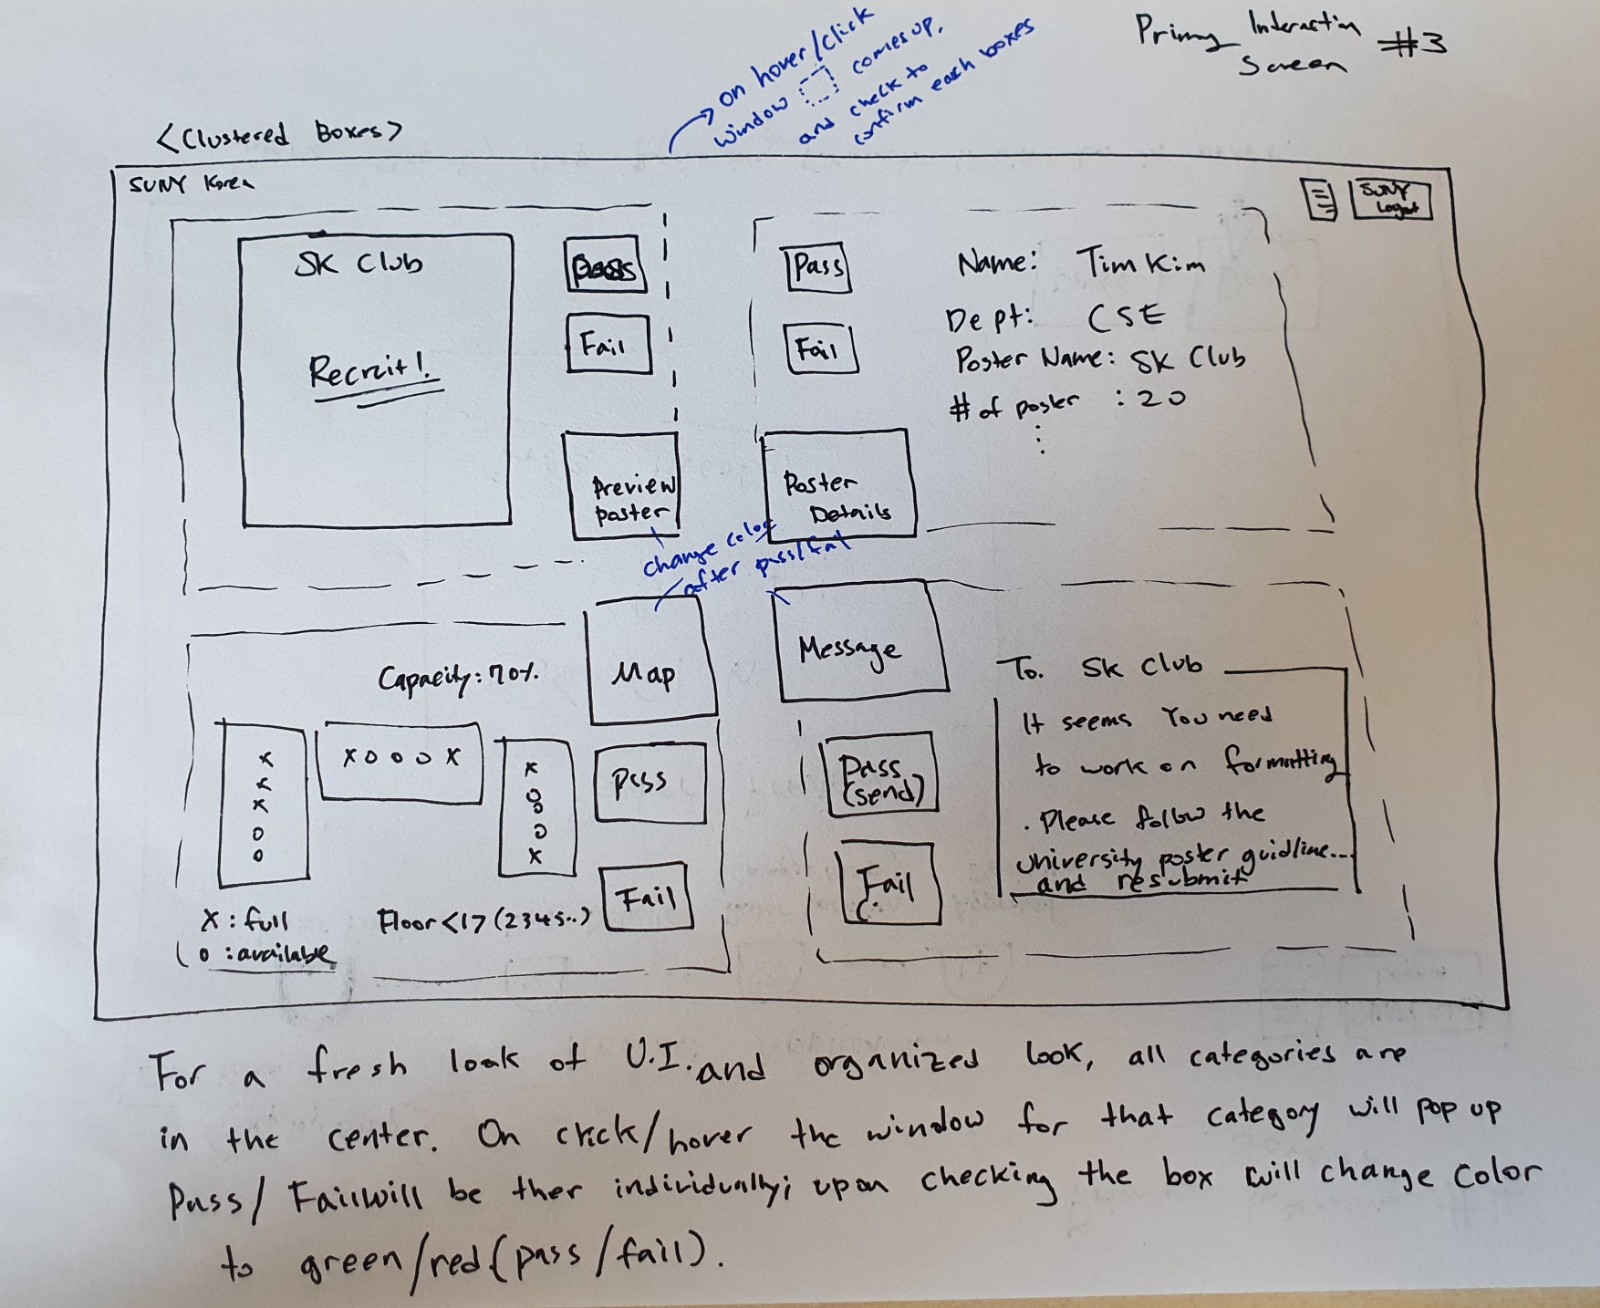 Primary Interaction
Screen #3
on hover/click
window comes up,
and check to
confirm each boxes
<Clustered Boxes>
SUNY Korea
SUNY
Logout
SK Club
Recruit!
Pass
Fail
Preview
Poster
Pass
Fail
Poster
Details
Name: Tim Kim
Dept: CSE
Poster Name: SK Club
# of poster : 20
change color
after pass/fail
Map
Message
Capacity: 70%
x
x
x
o
o
x o o o x
x
o
o
o
x
Pass
Fail
X : full
o : available
Floor <1> (2345..)
Pass
(send)
Fail
To. SK Club
It seems You need
to work on formatting
. Please follow the
University poster guidline...
and resubmit
For a fresh look of U.I. and organized look, all categories are
in the center. On click/hover the window for that category will pop up
Pass/Fail will be ther individually; upon checking the box will change color
to green/red (pass/fail).